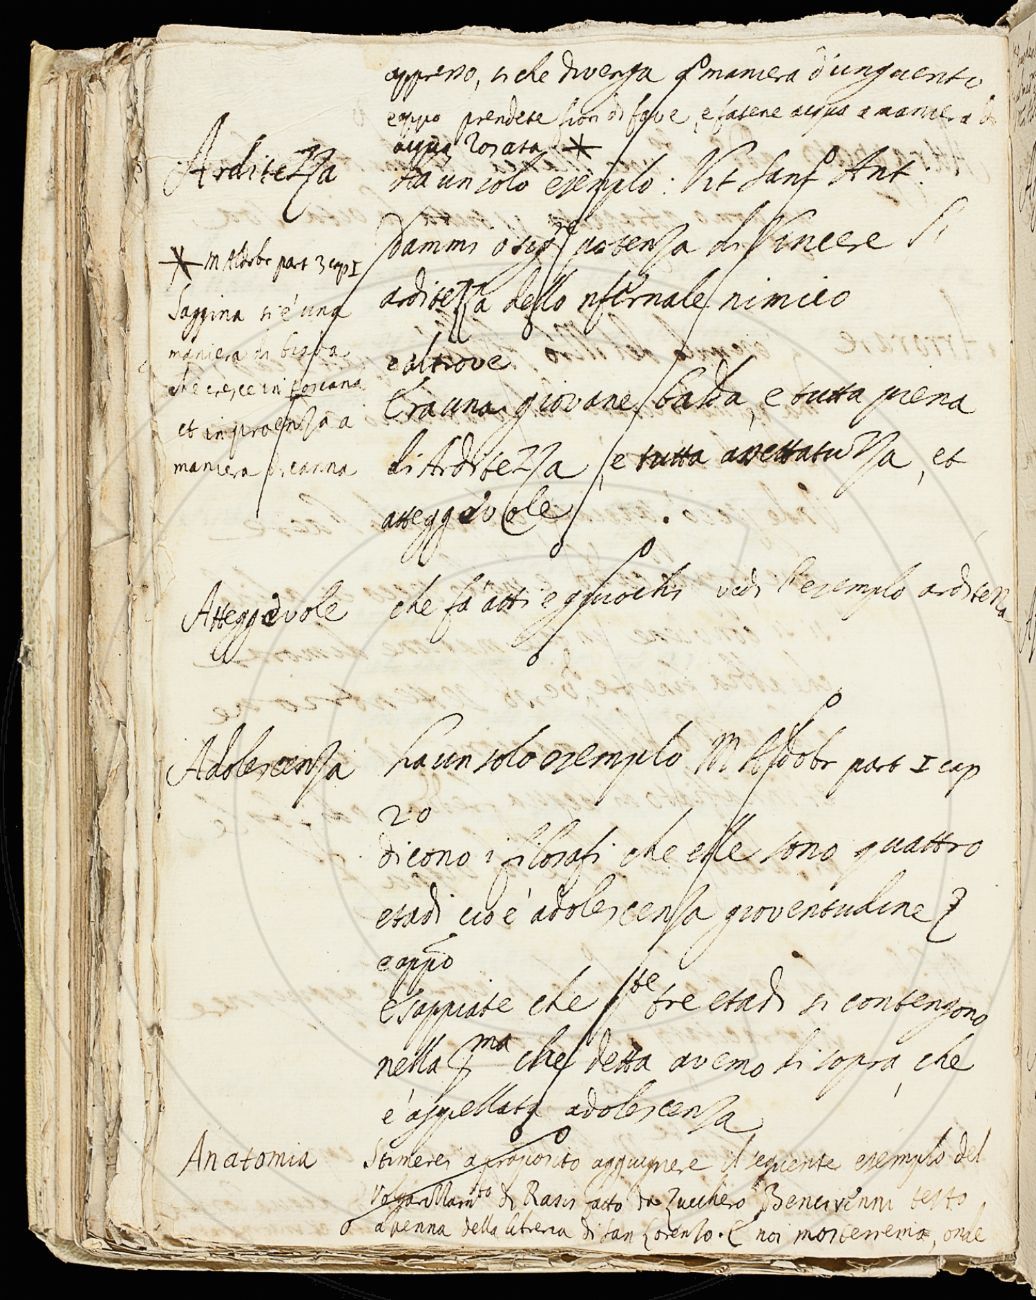 appresso, si che divenga p maniera d'unguento
e appo prendete fiori di fave, e fatene acqua a maniera di
acqua rosata *
Arditezza
ha un solo esempio: Vit Sanf Ant.
Dammi o sig potenza di vincere
arditezza dello nfernale nimico
* M Aldobr part 3 cap 1
Saggina si è una
maniera di biada
che cresce in Toscana
et in proenza a
maniera di canna
e altrove
Era una giovane balda, e tutta piena
di Arditezza, e tutta avettatuzza, et
atteggevole
Atteggevole che fa atti e giuochi vedi l'esempio arditezza
Adolescenza ha un solo esempio M Aldobr part I cap
20
dicono i filosafi che elle sono quattro
etadi cioè adolescenza gioventudine
e appo
E sappiate che qste tre etadi si contengono
nella pma che detta avemo di sopra, che
è appellata adolescenza
Anatomia Stimerei a proposito aggiugnere il seguente esempio del
Volgarizzamto di Rasis fatto da Zucchero Bencivenni testo
a penna della libreria di San Lorenzo. E noi mosterremo, onde